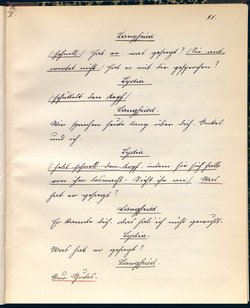 81.
Langfried
(schnell) Hat er was gesagt? (Sie ant-
wortet nicht) Hat er mit dir gesprochen?
Lydia
(schüttelt den Kopf)
Langfried.
Wir sprachen heute lang über dich. Onkel
und ich.
Lydia
(hebt schnell den Kopf, indem sie sich halb
von ihm losmacht. Sieht ihn an.) Was
hat er gesagt?
Langfried
Er kannte dich. Das hab ich nicht gewußt.
Lydia.
Was hat er gesagt?
Langfried.
Nur Gutes.